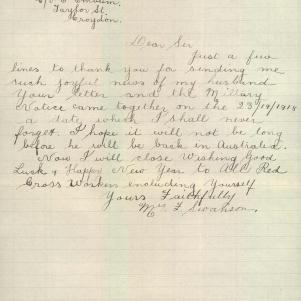 Taylor St.
Croydon.
Dear Sir
Just a few
lines to thank you for sending me
such joyful news of my husband
Your letter and the Military
Notice came together on the 23/12/1918
a date which I shall never
forget. I hope it will not be long
before he will be back in Australia.
Now I will close Wishing Good
Luck & Happy New Year to All Red
Cross Workers including Yourself
Yours Faithfully
Mrs F Swanson.